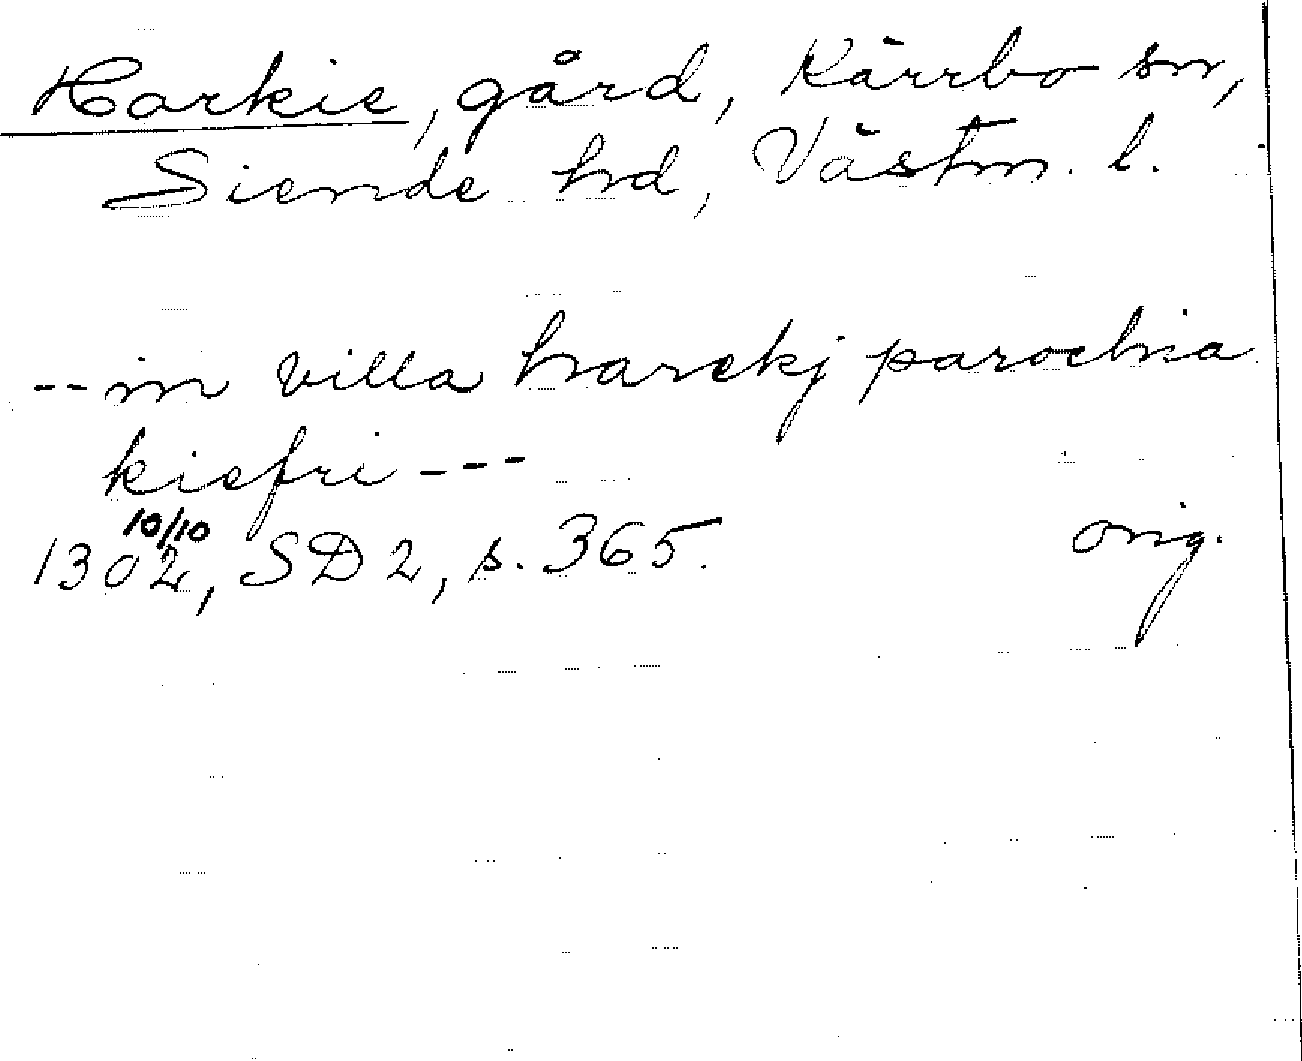 Harkie, gård, Kärrbo sn,
Siende hd, Västm. l.
-- in villa harckj parochia
kicfri ---
10/10
1302, SD 2, s. 365. orig.